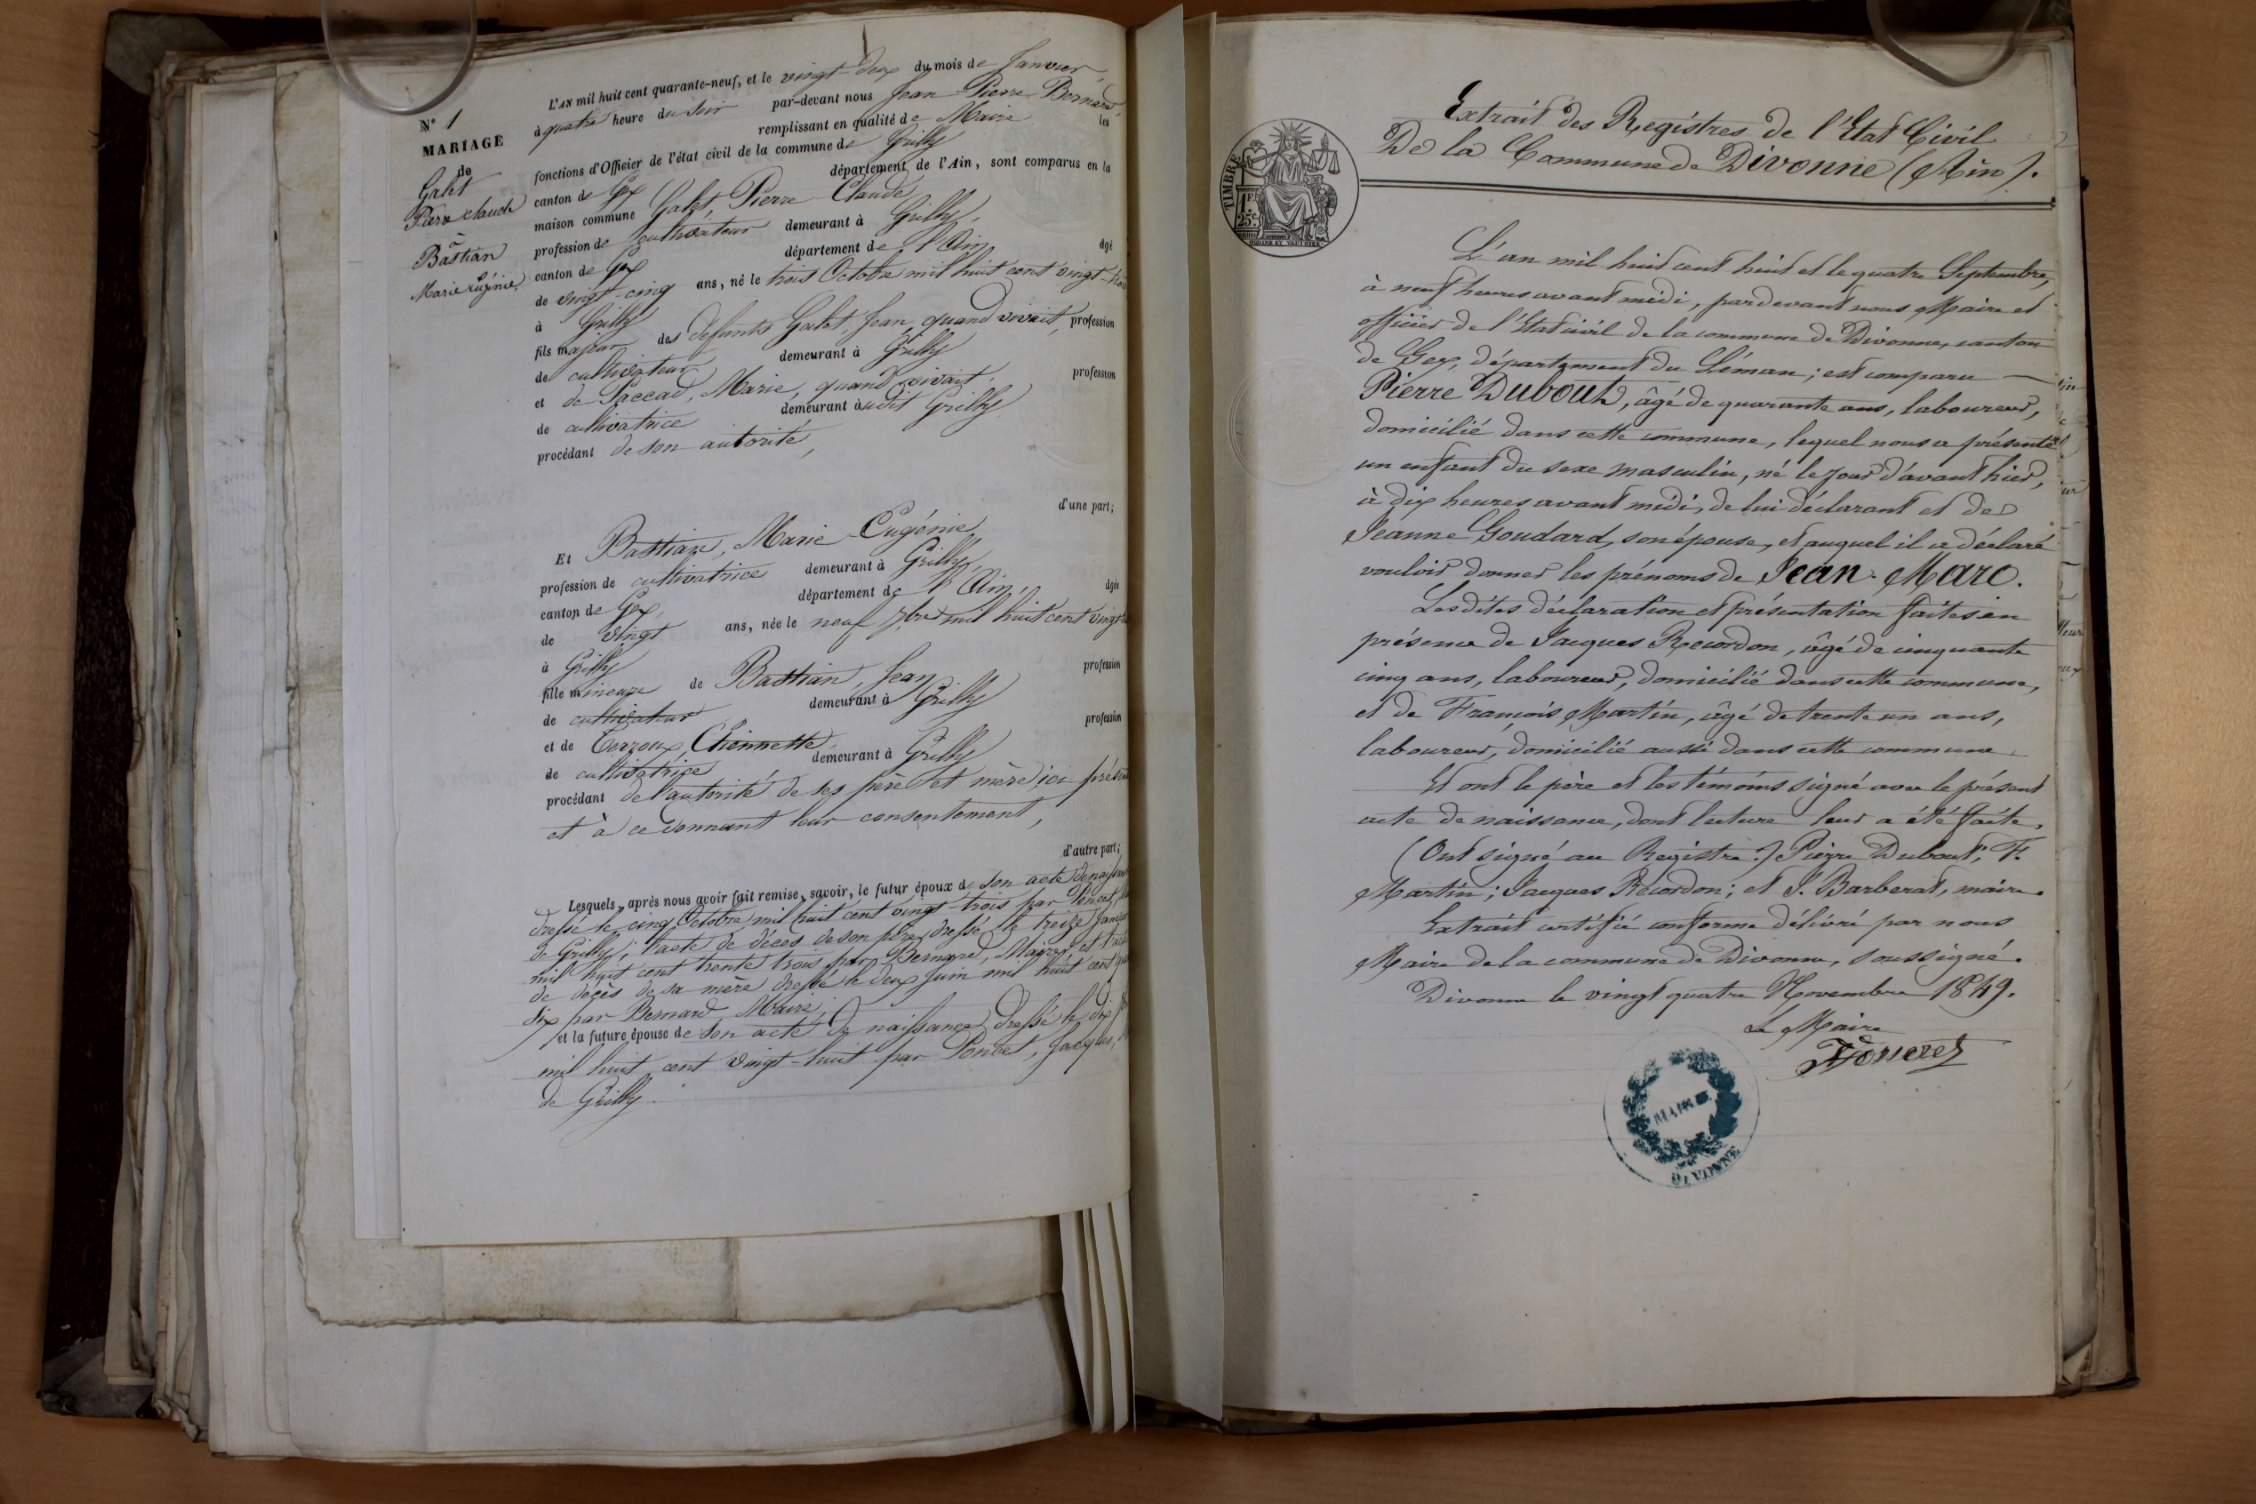 N° 1
MARIAGE
de
Galet
Pierre Claude
à
Bastian
Marie Eugénie.
L'AN mil huit cent quarante-neuf, et le vingt-deux du mois de Janvier,
à quatre heure du soir par-devant nous Jean Pierre Bernard,
remplissant en qualité de Maire les
fonctions d'Officier de l'état civil de la commune de Grilly
canton de Gex département de l'Ain, sont comparus en la
maison commune Galet, Pierre Claude
profession de cultivateur demeurant à Grilly,
canton de Gex département de l'Ain, âgé
de vingt-cinq ans, né le trois Octobre mil huit cent vingt-trois
à Grilly
fils majeur des défunts Galet, Jean, quand vivait, profession
de cultivateur demeurant à Grilly
et de Paccad, Marie, quand vivait, profession
de cultivatrice demeurant audit Grilly
procédant de son autorité,
d'une part;
Et Bastian, Marie Eugénie
profession de cultivatrice demeurant à Grilly,
canton de Gex département de l'Ain, âgée
de vingt ans, née le neuf 7bre mil huit cent vingt
à Grilly
fille mineure de Bastian, Jean profession
de cultivateur demeurant à Grilly
et de Terroux, Etiennette profession
de cultivatrice demeurant à Grilly
procédant de l'autorité de ses père et mère ici présents
et à ce donnant leur consentement,
d'autre part;
Lesquels, après nous avoir fait remise, savoir, le futur époux de son acte de naissance
dressé le cinq Octobre mil huit cent vingt trois par Poncet,
de Grilly; l'acte de décès de son père, dressé le treize Janvier
mil huit cent trente trois par Bernard, Maire, et l'acte
de décès de sa mère dressé le deux Juin mil huit cent
six par Bernard, Maire;
et la future épouse de son acte de naissance, dressé le dix
mil huit cent vingt-huit par Poncet, Jacques,
de Grilly.
Extrait des Registres de l'Etat Civil
De la Commune de Divonne (Ain).
TIMBRE
1 F.
25 c.
L'an mil huit cent huit et le quatre Septembre,
à neuf heures avant midi, pardevant nous Maire et
officier de l'Etat civil de la commune de Divonne, canton
de Gex, département du Léman; est comparu
Pierre Dubout, âgé de quarante ans, laboureur,
domicilié dans cette commune, lequel nous a présenté
un enfant du sexe masculin, né le jour d'avant hier,
à dix heures avant midi, de lui déclarant et de
Jeanne Goudard, son épouse, et auquel il a déclaré
vouloir donner les prénoms de Jean-Marc.
Lesdites déclaration et présentation faites en
présence de Jacques Recordon, âgé de cinquante
cinq ans, laboureur, domicilié dans cette commune,
et de François Martin, âgé de trente un ans,
laboureur, domicilié aussi dans cette commune.
Et ont le père et les témoins signé avec le présent
acte de naissance, dont lecture leur a été faite.
(Ont signé au Registre:) Pierre Dubout; F.
Martin; Jacques Recordon; et J. Barberat, maire.
Extrait certifié conforme délivré par nous
Maire de la commune de Divonne, soussigné.
Divonne le vingt quatre Novembre 1849.
Le Maire
MAIRIE
DIVONNE